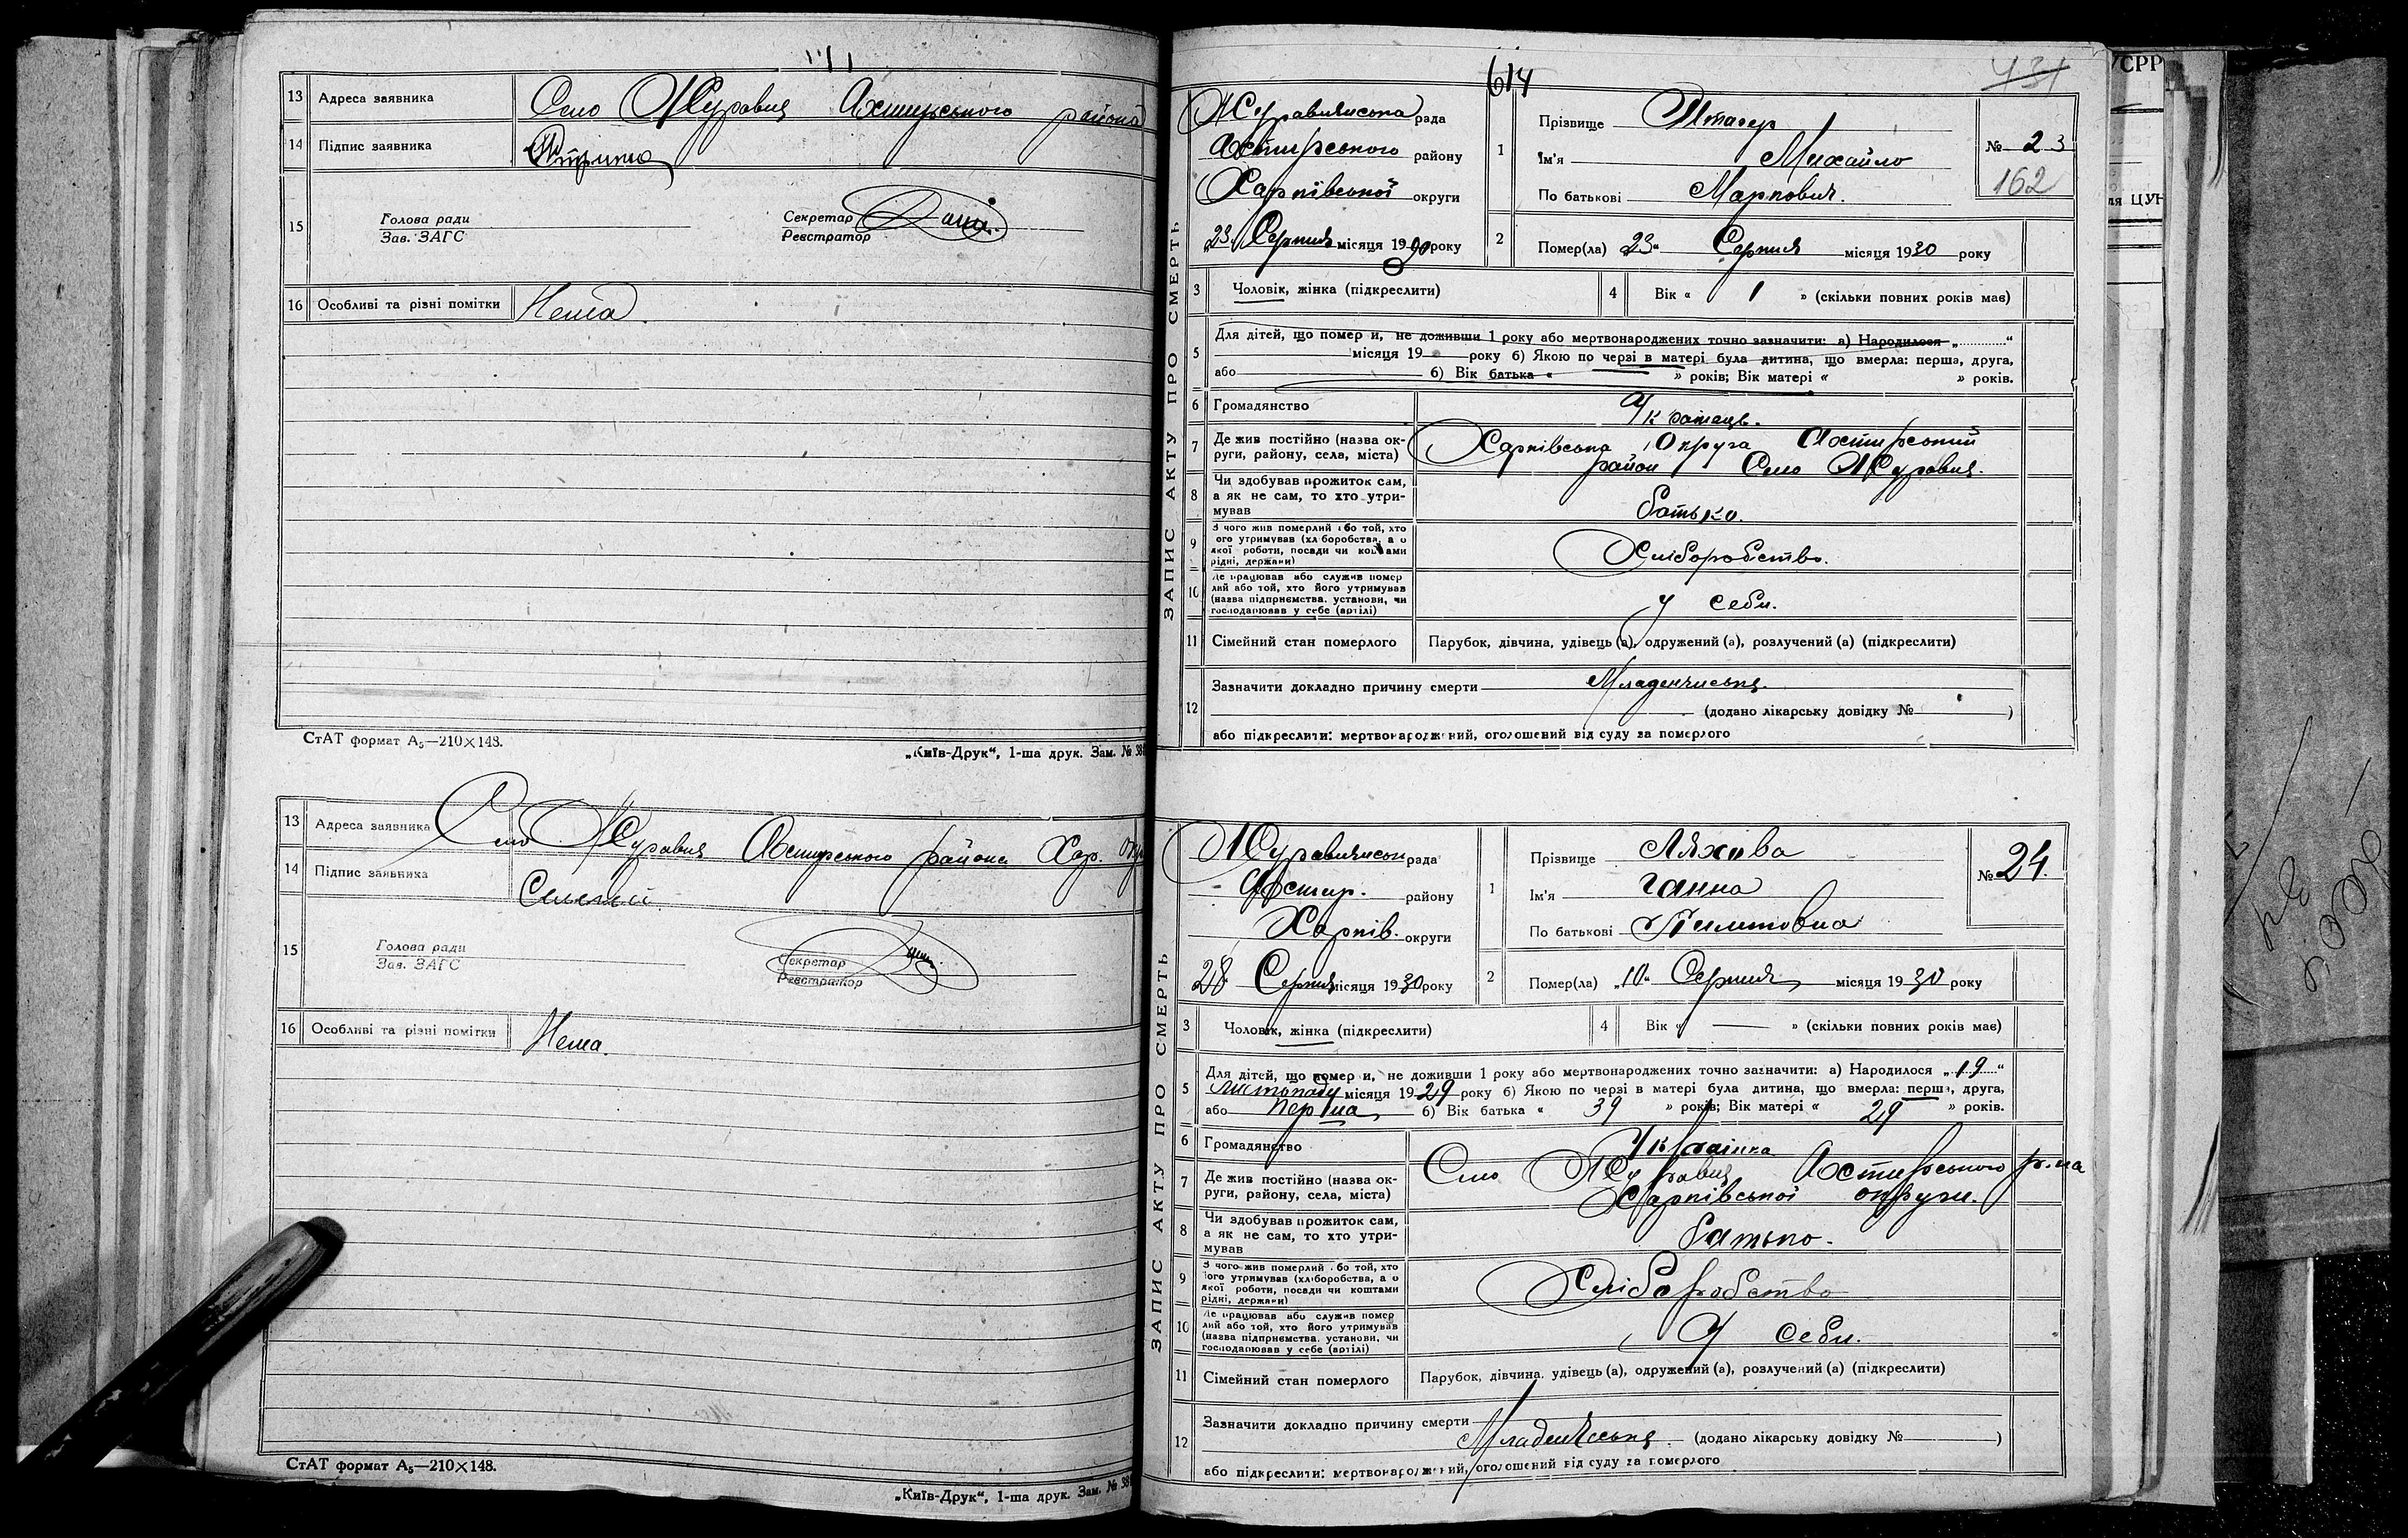 13 Адреса заявника Село Журавня Ахтирського району
14 Підпис заявника
15 Голова ради
Зав. ЗАГС
Секретар
Реєстратор
16 Особливі та різні помітки Нема.
СтАТ формат А5—210×148.
„Київ-Друк“, 1-ша друк. Зам. № 38
13 Адреса заявника Село Журавня Ахтирського району Хар. Окр
14 Підпис заявника
15 Голова ради
Зав. ЗАГС
Секретар
Реєстратор
16 Особливі та різні помітки Нема.
СтАТ формат А5—210×148.
„Київ-Друк“, 1-ша друк. Зам. № 38
614
431
ЗАПИС АКТУ ПРО СМЕРТЬ
рада
Ахтирського району
Харківської округи
„23“ Серпня місяця 1930 року
1 Прізвище
Ім'я Михайло
По батькові Маркович.
№ 23
162
2 Помер(ла) „23“ Серпня місяця 1930 року
3 Чоловік, жінка (підкреслити)
4 Вік « 1 » (скільки повних років має)
5 Для дітей, що помер и, не доживши 1 року або мертвонароджених точно зазначити: а) Народилося „ “
місяця 19 року б) Якою по черзі в матері була дитина, що вмерла: перша, друга,
або б) Вік батька « » років; Вік матері « » років.
6 Громадянство Українець.
7 Де жив постійно (назва округи, району, села, міста) Харківська Округа Ахтирський
район Село Журавня.
8 Чи здобував прожиток сам,
а як не сам, то хто утри-
мував батько.
9 З чого жив померлий або той, хто
його утримував (хліборобства, а о
якої роботи, посади чи коштами
рідні, держави) Хліборобство.
10 Де працював або служив помер
лий або той, хто його утримував
(назва підприємства, установи, чи
господарював у себе (артілі) У себе.
11 Сімейний стан померлого Парубок, дівчина, удівець (а), одружений (а), розлучений (а) (підкреслити)
12 Зазначити докладно причину смерти Младенчиська.
(додано лікарську довідку № )
або підкреслити: мертвонароджений, оголошений від суду за померлого
ЗАПИС АКТУ ПРО СМЕРТЬ
рада
Ахтир. району
Харків. округи
28 Серпня місяця 1930 року
1 Прізвище Ляхова
Ім'я Ганна
По батькові
№ 24.
2 Помер(ла) „10“ Серпня місяця 1930 року
3 Чоловік, жінка (підкреслити)
4 Вік « — » (скільки повних років має)
5 Для дітей, що помер и, не доживши 1 року або мертвонароджених точно зазначити: а) Народилося „19“
Листопаду місяця 1929 року б) Якою по черзі в матері була дитина, що вмерла: перша, друга,
або перша б) Вік батька « 39 » років; Вік матері « 29 » років.
6 Громадянство Українка
7 Де жив постійно (назва округи, району, села, міста) Село Журавня Ахтирського р-на
Харківської округи.
8 Чи здобував прожиток сам,
а як не сам, то хто утри-
мував батько.
9 З чого жив померлий або той, хто
його утримував (хліборобства, а о
якої роботи, посади чи коштами
рідні, держави) Хліборобство
10 Де працював або служив помер
лий або той, хто його утримував
(назва підприємства, установи, чи
господарював у себе (артілі) У себе.
11 Сімейний стан померлого Парубок, дівчина, удівець (а), одружений (а), розлучений (а) (підкреслити)
12 Зазначити докладно причину смерти Младенчеська.
(додано лікарську довідку № )
або підкреслити: мертвонароджений, оголошений від суду за померлого
УСРР
ля ЦУН